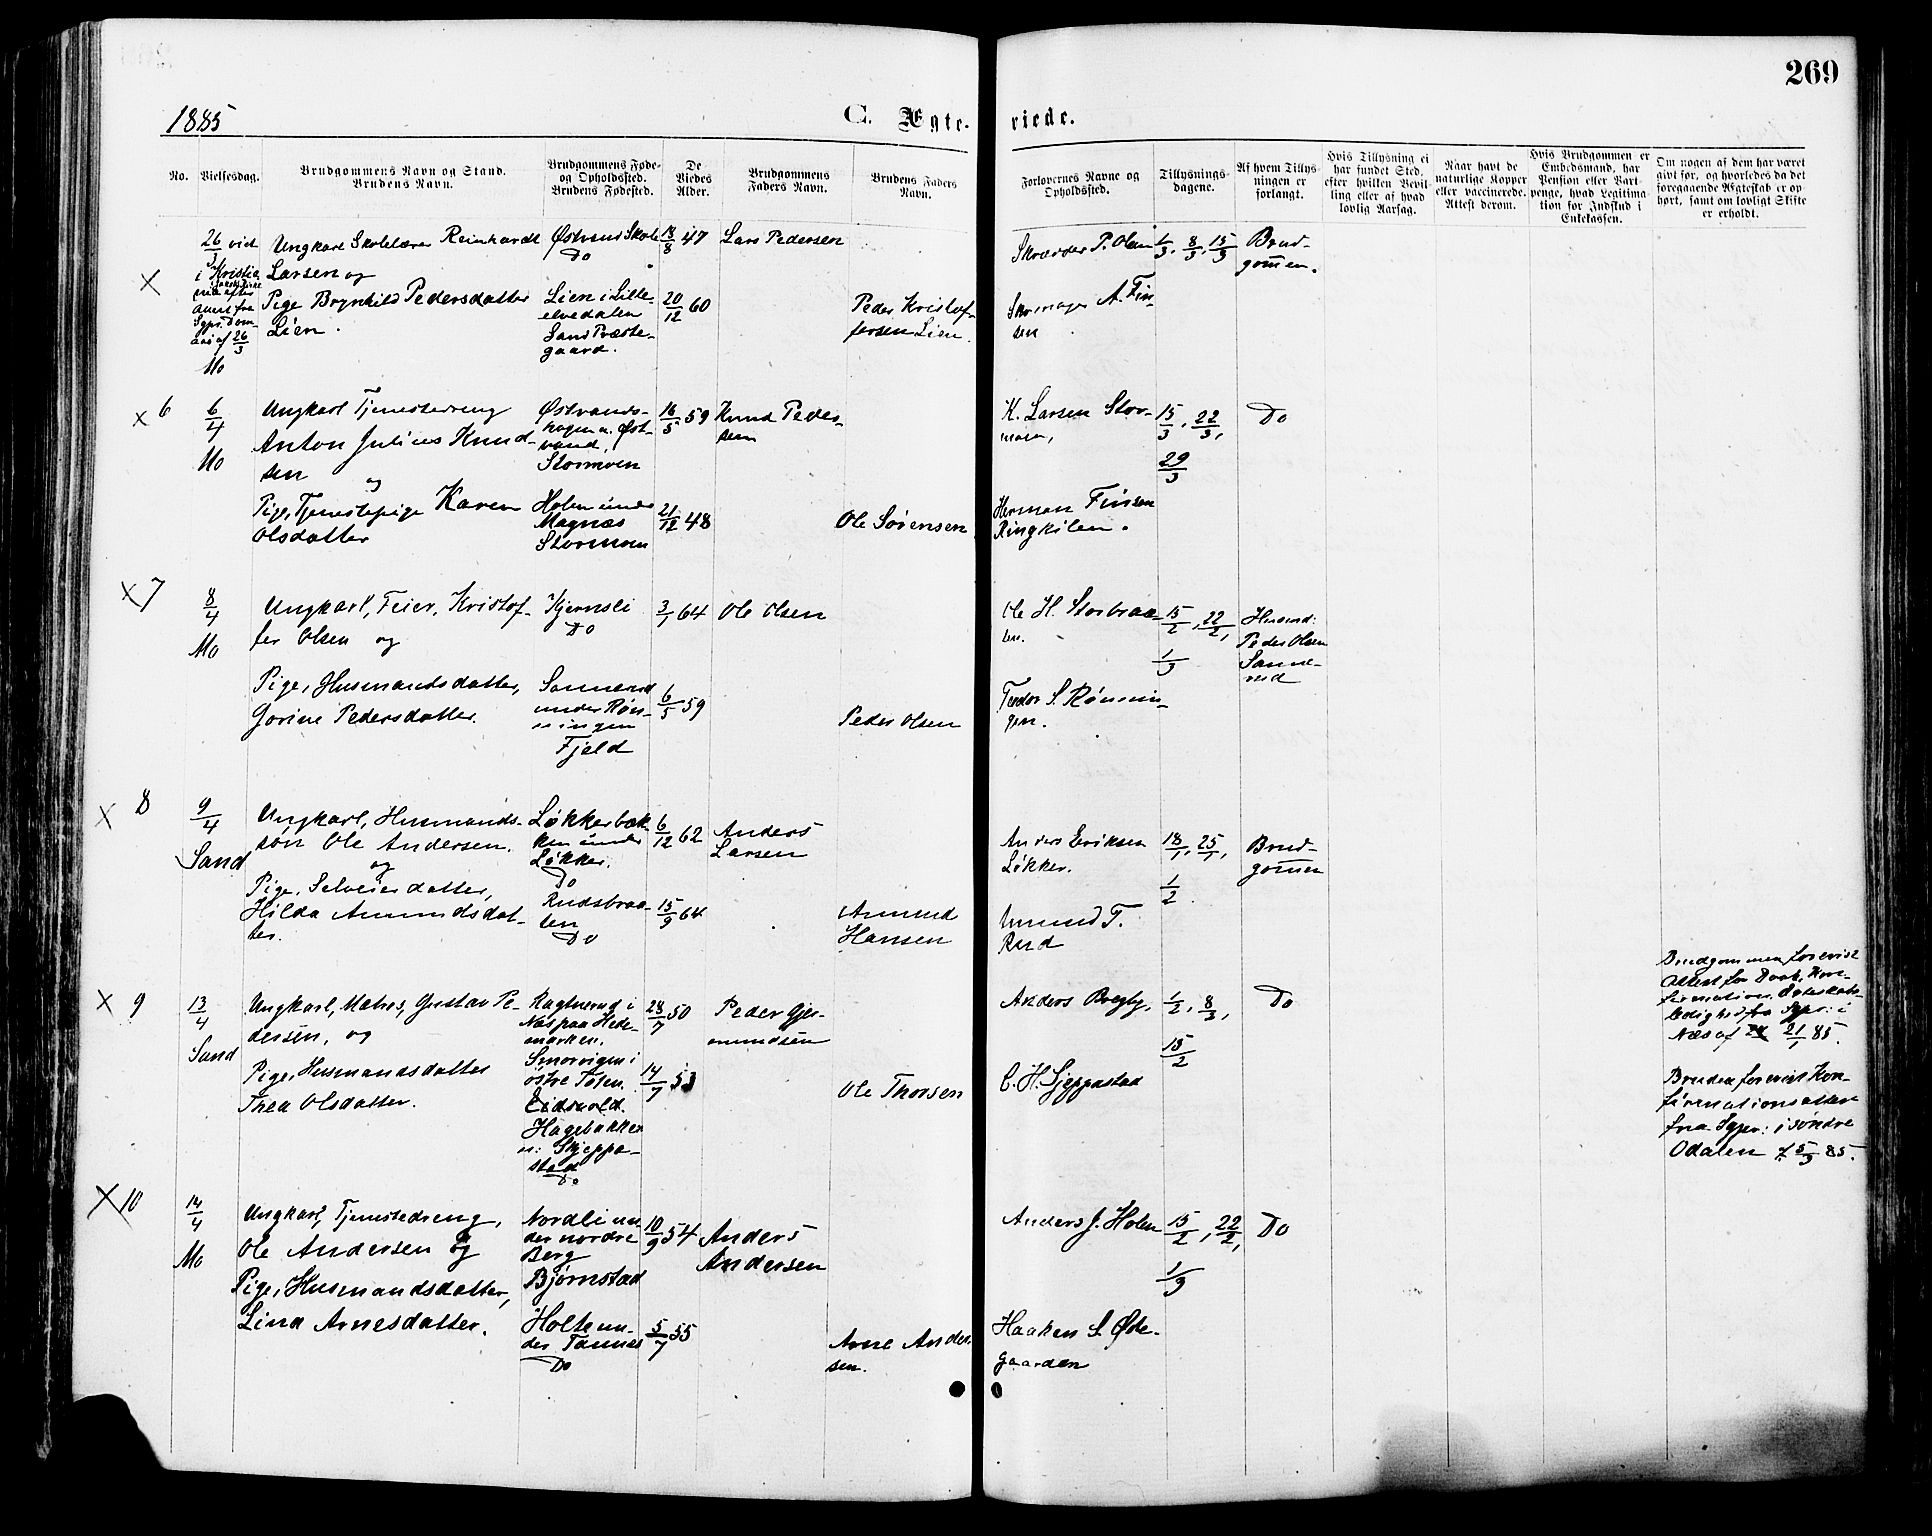 269
1885
C. Ægte-
viede.
No.
Vielsesdag.
Brudgommens Navn og Stand.
Brudens Navn.
Brudgommens Føde-
og Opholdssted.
Brudens Fødested.
De
Viedes
Alder.
Brudgommens
Faders Navn.
Brudens Faders
Navn.
Forlovernes Navne og
Opholdssted.
Tillysnings-
dagene.
Af hvem Tillys-
ningen er
forlangt.
Hvis Tillysning ei
har fundet Sted,
efter hvilken Bevil-
ling eller af hvad
lovlig Aarsag.
Naar havt de
naturlige Kopper
eller vaccinerede.
Attest derom.
Hvis Brudgommen er
Embedsmand, har
Pension eller Vart-
penge, hvad Legitima-
tion for Indskud i
Enkekassen.
Om nogen af dem har været
givt før, og hvorledes da det
foregaaende Ægteskab er op-
hørt, samt om lovligt Skifte
er erholdt.
X
26/3 viet
i Kristia
nia efter
fra
Sgpr. Dom-
af 26/3
Mo
Ungkarl Skolelærer Reinhardt
Larsen og
Pige Brynhild Pedersdatter
Lien.
Østvens Skole
Do
Lien i Lille
elvedalen
Sand Præste-
gaard.
18/8 47
20/12 60
Lars Pedersen
Peder Kristof-
fersen Lien.
Skrædder P. Olsen
Skomager A. Fin-
sen
1/3, 8/3, 15/3
Brud-
gommen.
x 6
6/4
Mo
Ungkarl Tjenestedreng
Anton Julius Knud-
sen og
Pige, Tjenestepige Karen
Olsdatter
Østvands-
hagen u. Øst-
vand,
Stormoen
Holen under
Magnæs
Stormoen
16/5 59
21/12 48
Knud Peder-
sen
Ole Sørensen
K. Larsen Stor-
moen,
Herman Finsen
Ringkilen.
15/3, 22/3,
29/3
Do
x 7
8/4
Mo
Ungkarl, Feier, Kristof-
fer Olsen og
Pige, Husmandsdatter,
Gorine Pedersdatter.
Kjernsli
Do
Sannerud
under Røn-
ningen
Fjeld
3/1 64
6/5 59
Ole Olsen
Peder Olsen
Ole H. Storbraa-
ten.
Teodor S. Rønnin-
gen.
15/2, 22/2,
1/3
Husmd:
Peder Olsen
Sanne-
rud
x 8
9/4
Sand
Ungkarl, Husmands-
søn Ole Andersen.
og
Pige, Selveierdatter,
Hilda Amundsdat-
ter.
Løkkerbæk-
ken under
Løkker.
Do
Rudsbraa-
ten
Do
6/12 62
15/9 64
Anders
Larsen
Amund
Hansen
Anders Eriksen
Løkker.
Amund T.
Rud
18/1, 25/1,
1/2
Brud-
gommen
x 9
13/4
Sand
Ungkarl, Matros, Gustav Pe-
dersen, og
Pige, Husmandsdatter
Thea Olsdatter.
i
Næs paa Hede-
marken.
Smorvigen i
østre Toten.
Eidsvold.
Hagebakken
u: Skjeppe-
stad
Do
28/7 50
14/7 53
Peder Gjer-
mundsen
Ole Thorsen
Anders Bregby,
C. H. Sjeppestad
1/2, 8/2,
15/2
Do
Brudgommen foreviste
Attest for Daab, Kon-
firmation, Ægteskabs-
ledighed fra Sgpr: i
Næs af 21/1 85.
Bruden foreviste Kon-
firmationsattest
fra Sgpr: i søndre
Odalen af 5/3 85.
X 10
14/4
Mo
Ungkarl, Tjenestedreng,
Ole Andersen og
Pige, Husmandsdatter,
Lina Arnesdatter.
Nordli un-
der nordre
Berg
Bjørnstad
Holte un-
der Tannæs
Do
10/9 54
5/7 55
Anders
Andersen
Arne Ander-
sen.
Anders J. Holen
Haaken S. Øde-
gaarden
15/2, 22/2,
1/3
Do